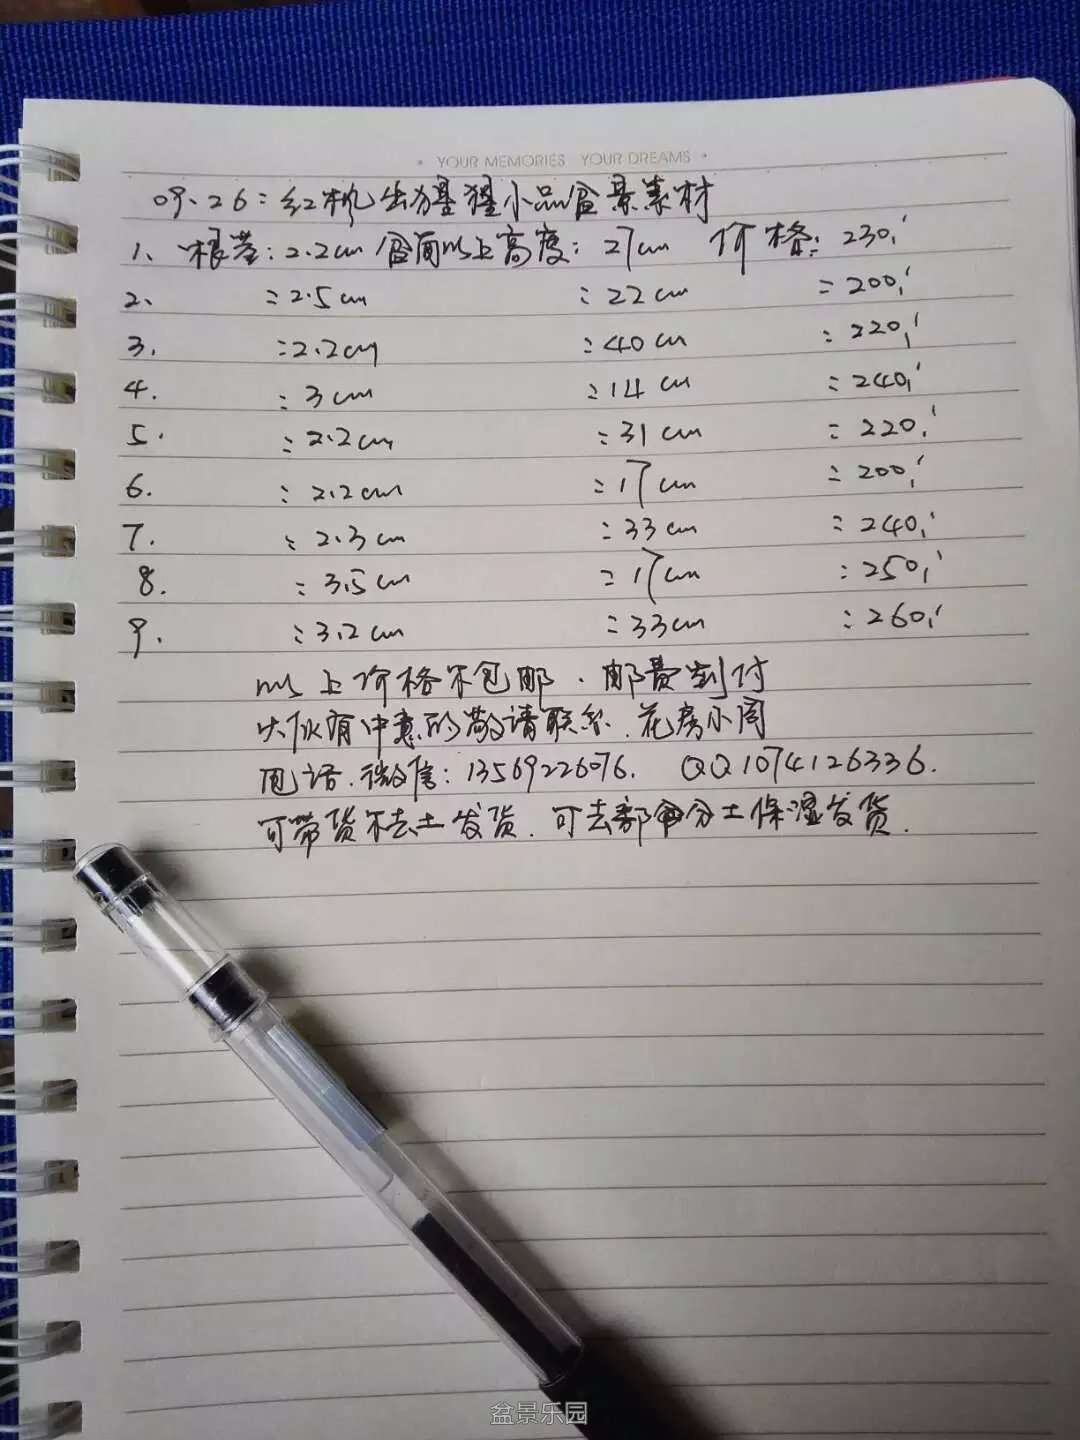 • YOUR MEMORIES YOUR DREAMS •
09.26:红机出猩猩小品盆景素材
1、根茎:2.2cm 盆面以上高度:27cm 价格:230,'
2、 :2.5cm :22cm :200,'
3. :2.2cm :40cm :220,'
4. :3cm :14cm :240,'
5. :2.2cm :31cm :220,'
6. :2.2cm :17cm :200,'
7. :2.3cm :33cm :240,'
8. :3.5cm :17cm :250,'
9. :3.2cm :33cm :260,'
以上价格不包邮、邮费到付
大伙有中意的敬请联系.花房小周
电话.微信:13569226076. QQ1074126336.
可带货不去土发货.可去部分土保湿发货.
盆景乐园